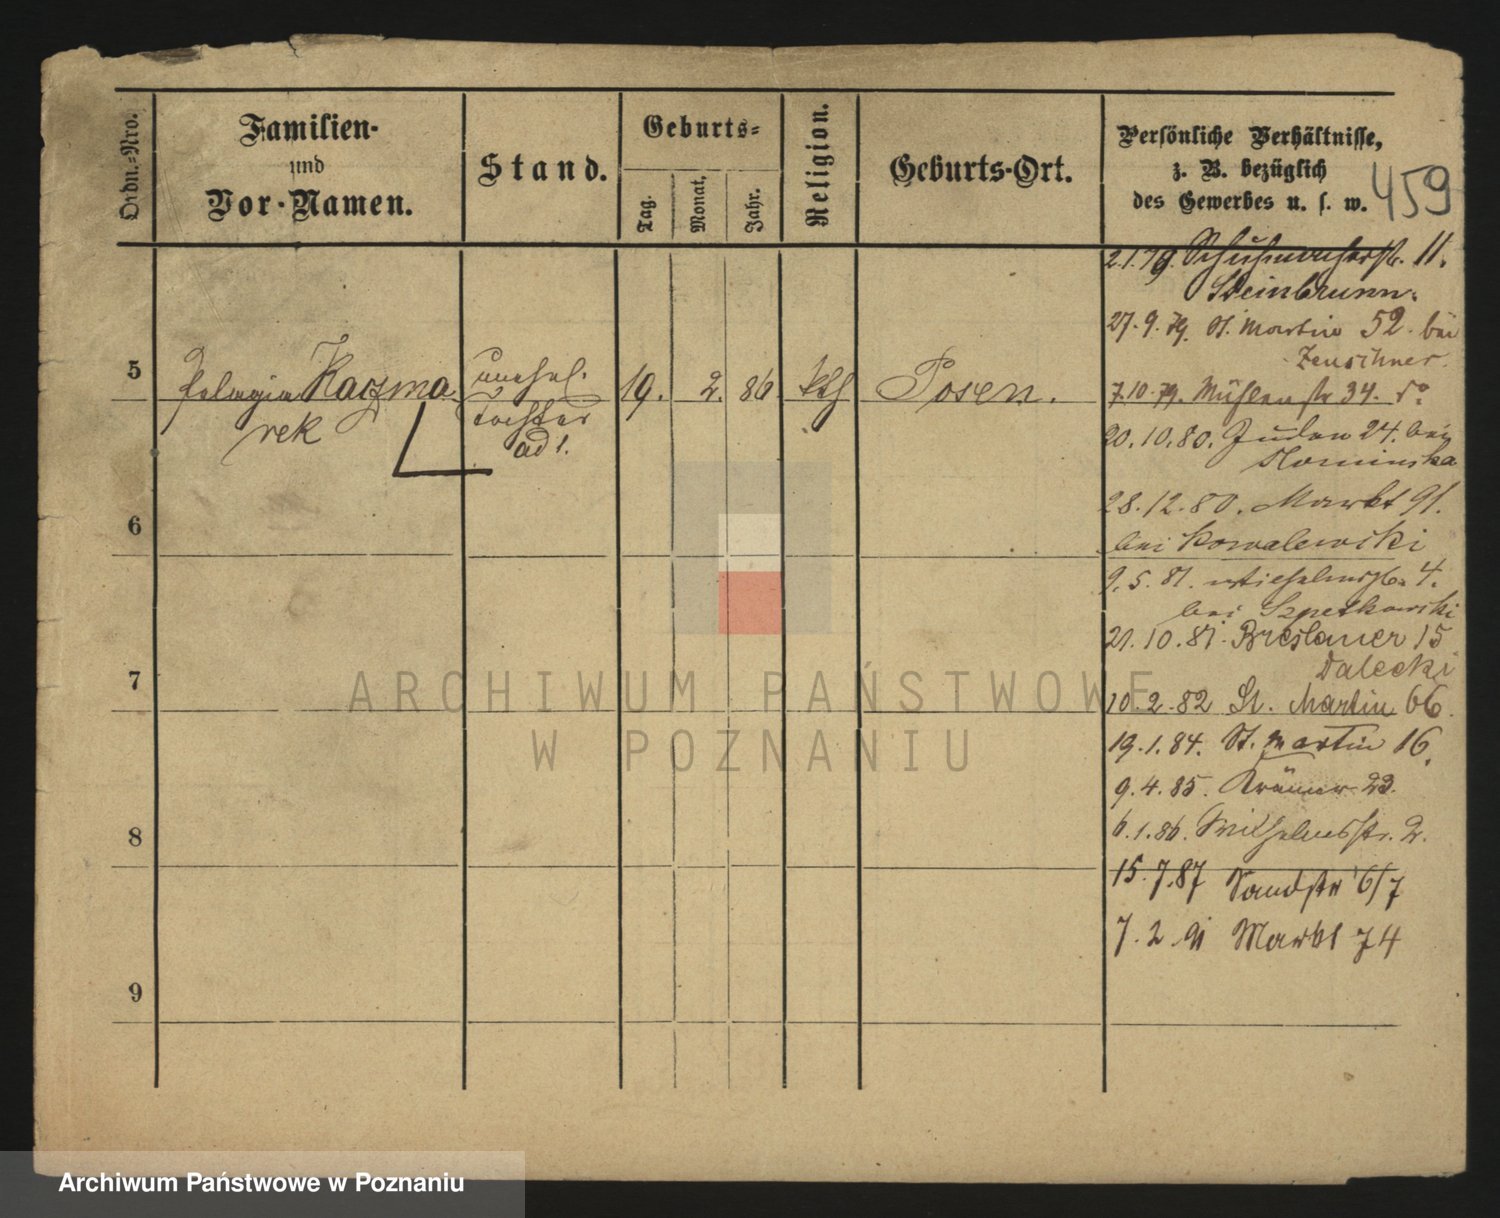 Ordn.-Nro.
Familien-
und
Vor-Namen.
Stand.
Geburts-
Tag.
Monat.
Jahr.
Religion.
Geburts-Ort.
Persönliche Verhältnisse,
z. B. bezüglich
des Gewerbes u. s. w.
459
5
Pelagia Kaczma
rek
unehel.
tochter
ad 1.
19.
2.
86
kth
Posen.
6
7
8
9
2.1.79. Schuhmacherstr. 11.
Steinbrunn.
27.9.79. St. Martin 52. bei
Zeuschner.
7.10.79. Mühlenstr 34. do
20.10.80. Juden 24. bei
Slominska
28.12.80. Markt 91.
bei Kowalewski
9.5.81. 4.
bei
21.10.81. Breslauer 15
Dalecki
10.2.82 St. Martin 66.
19.1.84. St. Martin 16.
9.4.85. Krämer 23.
6.1.86. Wilhelmsstr. 2.
15.7.87 Sandstr 6/7
7.2.91 Markt 74
ARCHIWUM PAŃSTWOWE
W POZNANIU
Archiwum Państwowe w Poznaniu